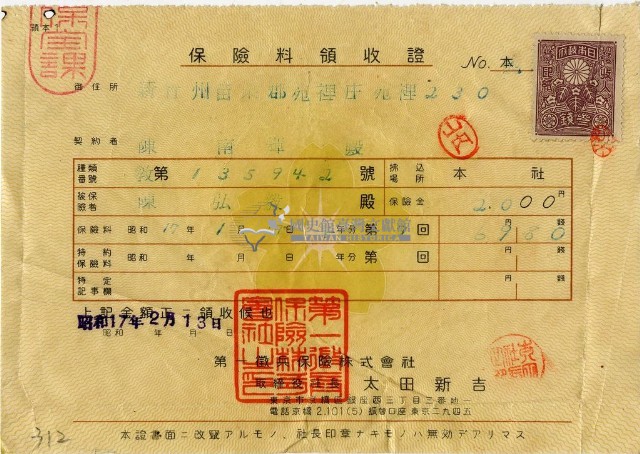 保險料領收證
No. 本
御住所 新竹州苗栗郡苑裡庄苑裡230
契約者 陳 南 殿
種類番號 教 第 13594-2 號 拂込場所 本社
被保險者 陳 弘 殿 保險金 2,000 円
保險料 昭和 17 年 1 月 日 年分 第 回 円 錢
特約保險料 昭和 年 月 日 年分 第 回 円 錢
特定記事欄 円 錢
國史館臺灣文獻館
TAIWAN HISTORICA
上記金額正ニ領收候也
昭和17年2月13日
昭和 年 月 日
第一徵兵保險株式會社
取締役社長 太田新吉
東京市京橋區銀座西三丁目三番地一
電話京橋2,101(5) 振替口座東京二九四五
本證書面ニ改竄アルモノ、社長印章ナキモノハ無効デアリマス
312